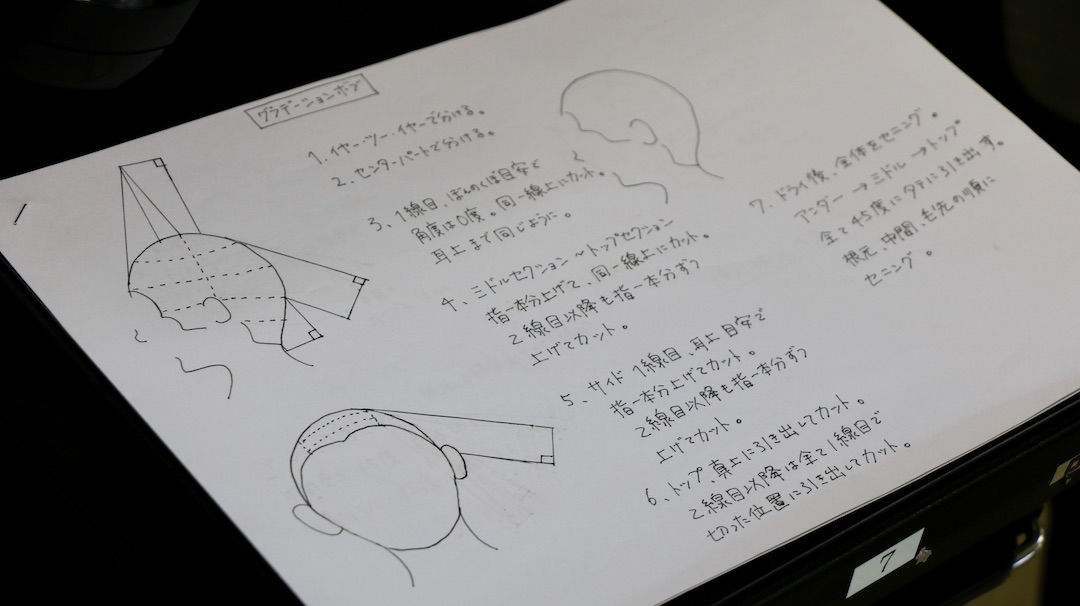 グラデーションボブ
1. イヤー・ツー・イヤーで分ける。
2. センターパートで分ける。
3. 1線目、ぼんのくぼ目安で
角度は0度。同一線上にカット。
耳上まで同じように。
4. ミドルセクション～トップセクション
指一本分上げて、同一線上にカット。
2線目以降も指一本分ずつ
上げてカット。
5. サイド1線目、耳上目安で
指一本分上げてカット。
2線目以降も指一本分ずつ
上げてカット。
6. トップ、真上に引き出してカット。
2線目以降は全て1線目で
切った位置に引き出してカット。
7. ドライ後、全体をセニング。
アンダー→ミドル→トップ
全て45度にタテに引き出す。
根元、中間、毛先の順に
セニング。
7